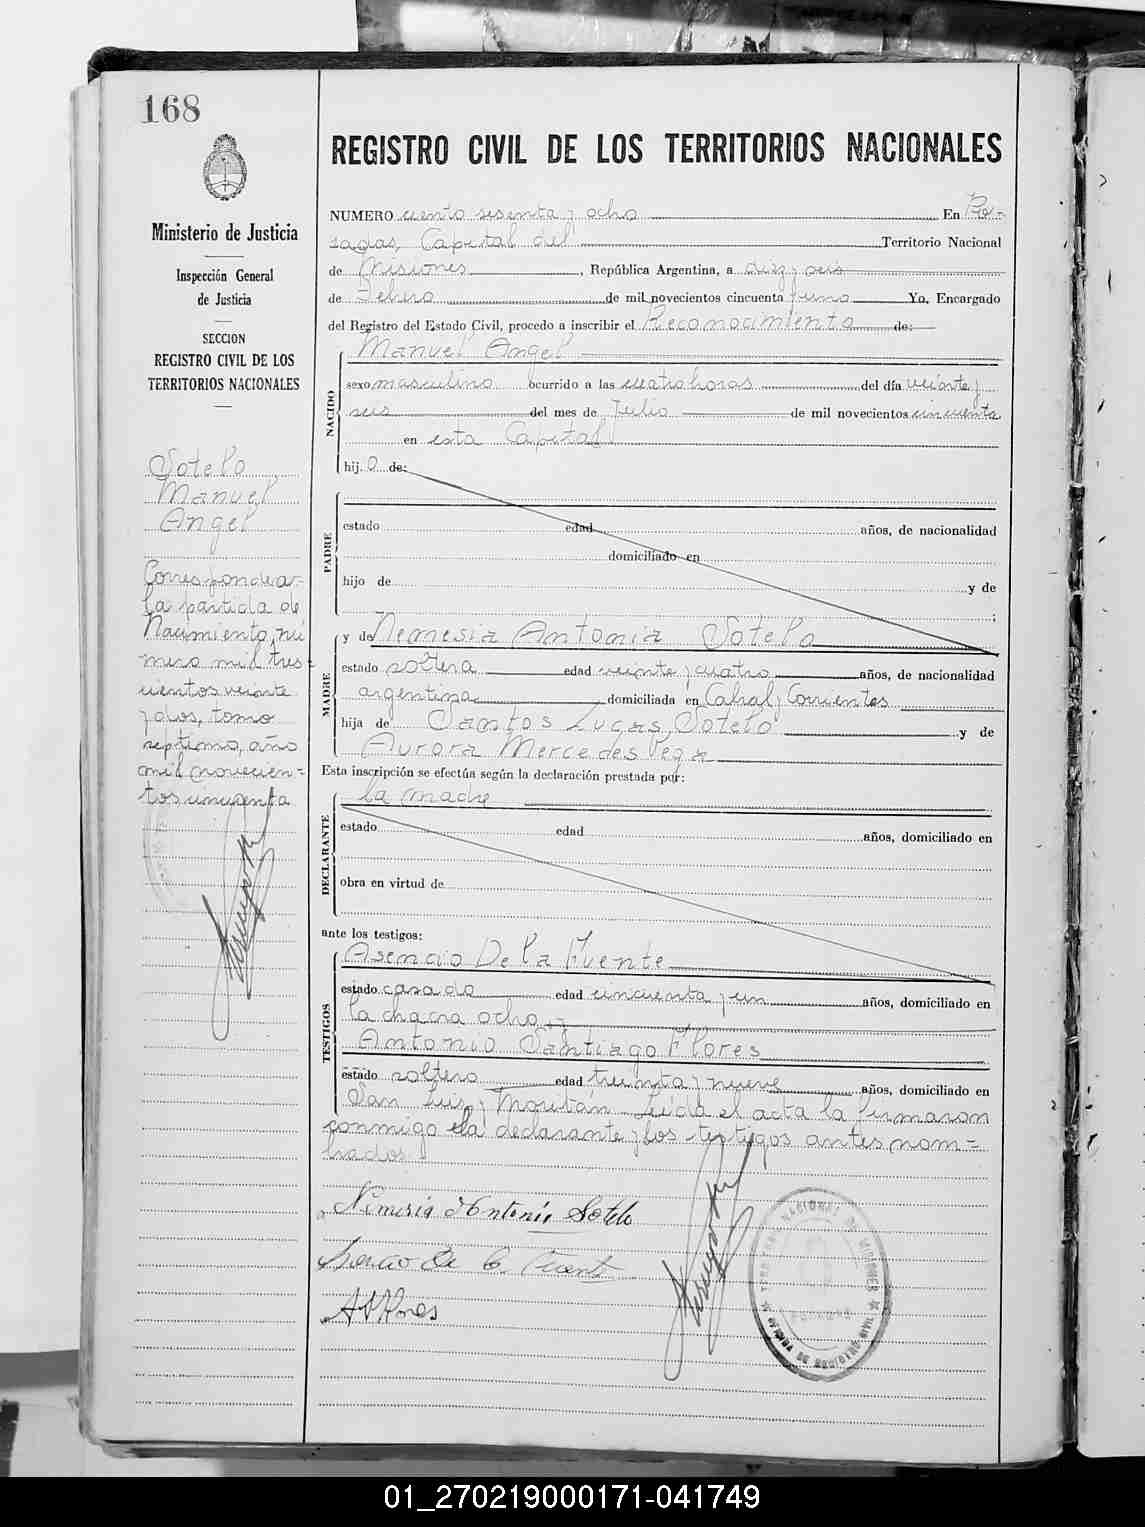 168
REGISTRO CIVIL DE LOS TERRITORIOS NACIONALES
Ministerio de Justicia
Inspección General
de Justicia
SECCION
REGISTRO CIVIL DE LOS
TERRITORIOS NACIONALES
Sotelo
Manuel
Angel
Corresponde a
la partida de
Nacimiento nú
mero mil tres=
cientos veinte
y dos, tomo
septimo, año
mil novecien=
tos cincuenta
NUMERO ciento sesenta y ocho En Po-
sadas, Capital del Territorio Nacional
de Misiones, República Argentina, a diez y seis
de Febrero de mil novecientos cincuenta y uno Yo, Encargado
del Registro del Estado Civil, procedo a inscribir el Reconocimiento de:
Manuel Angel
NACIDO
sexo masculino ocurrido a las cuatro horas del día veinte y
seis del mes de Julio de mil novecientos cincuenta
en esta Capital
hij o de:
PADRE
estado edad años, de nacionalidad
domiciliado en
hijo de y de
y de Nemesia Antonia Sotelo
MADRE
estado soltera edad veinte y cuatro años, de nacionalidad
argentina domiciliada en Cabral y Corrientes
hija de Santos Lucas Sotelo y de
Aurora Mercedes Vega
Esta inscripción se efectúa según la declaración prestada por:
la madre
DECLARANTE
estado edad años, domiciliado en
obra en virtud de
ante los testigos:
Asencio De la Fuente
TESTIGOS
estado casado edad cincuenta y un años, domiciliado en
la chacra ocho.-
Antonio Santiago Flores
estado soltero edad treinta y nueve años, domiciliado en
San Luiz y Moritán Leída el acta la firmaron
conmigo la declarante y los testigos antes nom=
brados
Nemesia Antonia Sotelo
De la Fuente
A S Flores
TERRITORIO NACIONAL DE MISIONES
OFICINA DE REGISTRO CIVIL
POSADAS
01_270219000171-041749